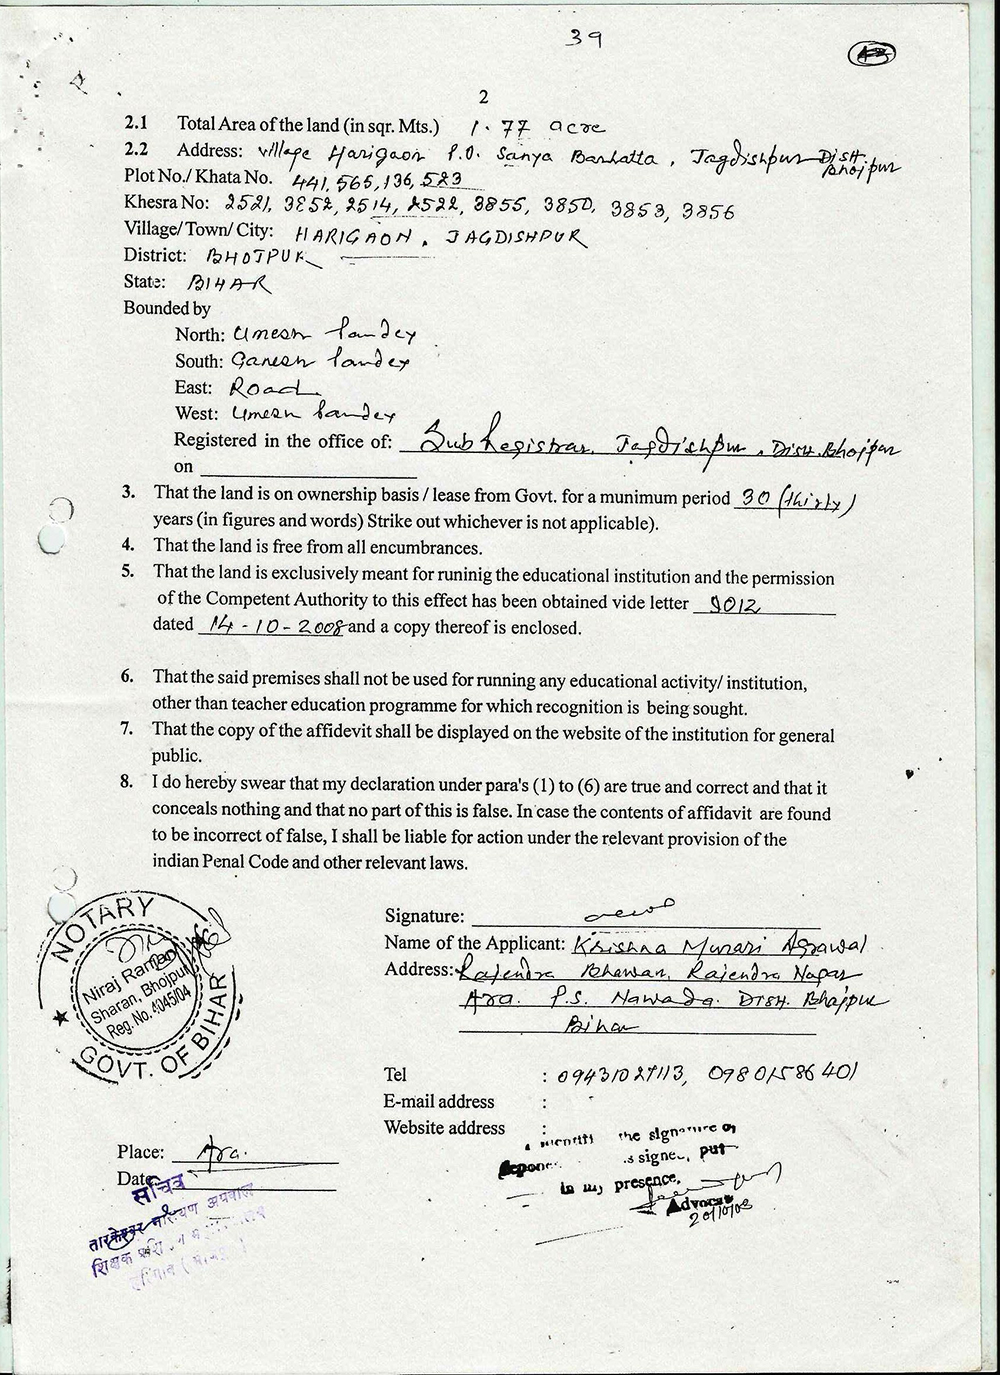 39
2
2.1 Total Area of the land (in sqr. Mts.) 1.77 acre
2.2 Address: village Harigaon P.O. Sanya Barhatta, Jagdishpur Distt. Bhojpur
Plot No./ Khata No. 441, 565, 136, 523
Khesra No: 2521, 3852, 2514, 2522, 3855, 3850, 3853, 3856
Village/ Town/ City: HARIGAON, JAGDISHPUR
District: BHOJPUR
State: BIHAR
Bounded by
North: Umesh Pandey
South: Ganesh Pandey
East: Road
West: Umesh Pandey
Registered in the office of: Sub Registrar, Jagdishpur, Distt. Bhojpur
on
3. That the land is on ownership basis / lease from Govt. for a munimum period 30 (thirty)
years (in figures and words) Strike out whichever is not applicable).
4. That the land is free from all encumbrances.
5. That the land is exclusively meant for runinig the educational institution and the permission
of the Competent Authority to this effect has been obtained vide letter 9012
dated 14-10-2008 and a copy thereof is enclosed.
6. That the said premises shall not be used for running any educational activity/ institution,
other than teacher education programme for which recognition is being sought.
7. That the copy of the affidevit shall be displayed on the website of the institution for general
public.
8. I do hereby swear that my declaration under para's (1) to (6) are true and correct and that it
conceals nothing and that no part of this is false. In case the contents of affidavit are found
to be incorrect of false, I shall be liable for action under the relevant provision of the
indian Penal Code and other relevant laws.
Signature:
Name of the Applicant: Krishna Murari Agrawal
Address: Rajendra Bhawan, Rajendra Nagar
Ara. P.S. Nawada. Distt. Bhojpur
Bihar
NOTARY
Niraj Ranjan
Sharan, Bhojpur
Reg. No. 4045/04
GOVT. OF BIHAR
Tel : 09431027113, 09801586401
E-mail address :
Website address :
the signature of
signed, put
in my presence.
Advocate
20/10/08
Place: Ara.
Date:
सचिव
तारकेश्वर नारायण अग्रवाल
शिक्षक